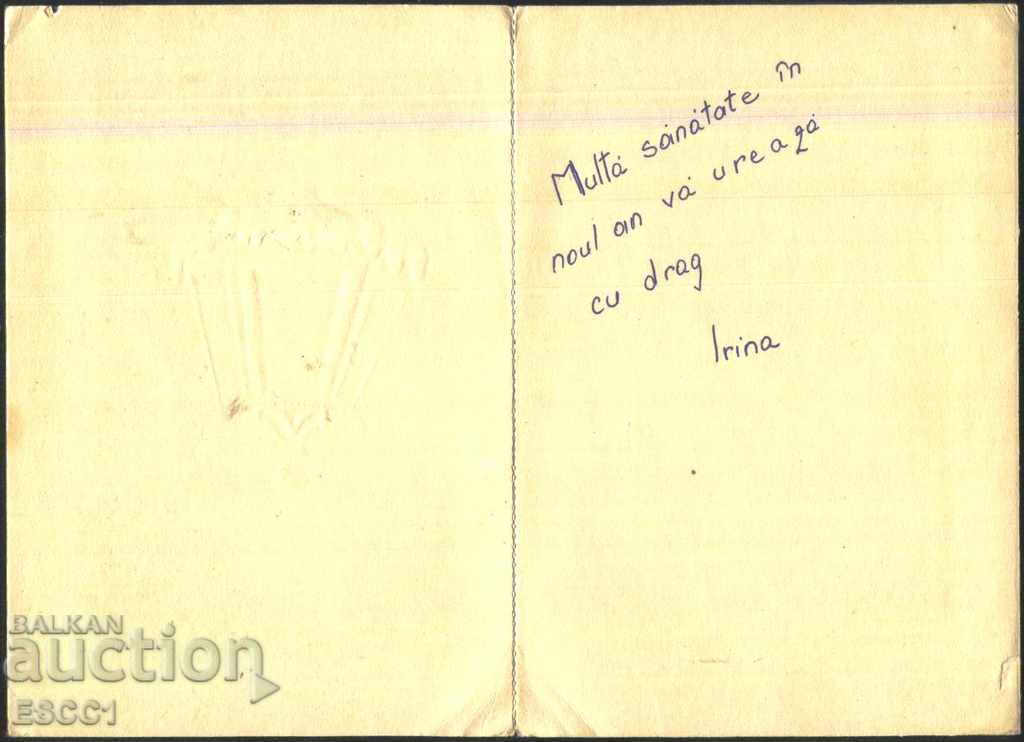 Multă sănătate în
noul an vă urează
cu drag
Irina
BALKAN
auction
ESCC1